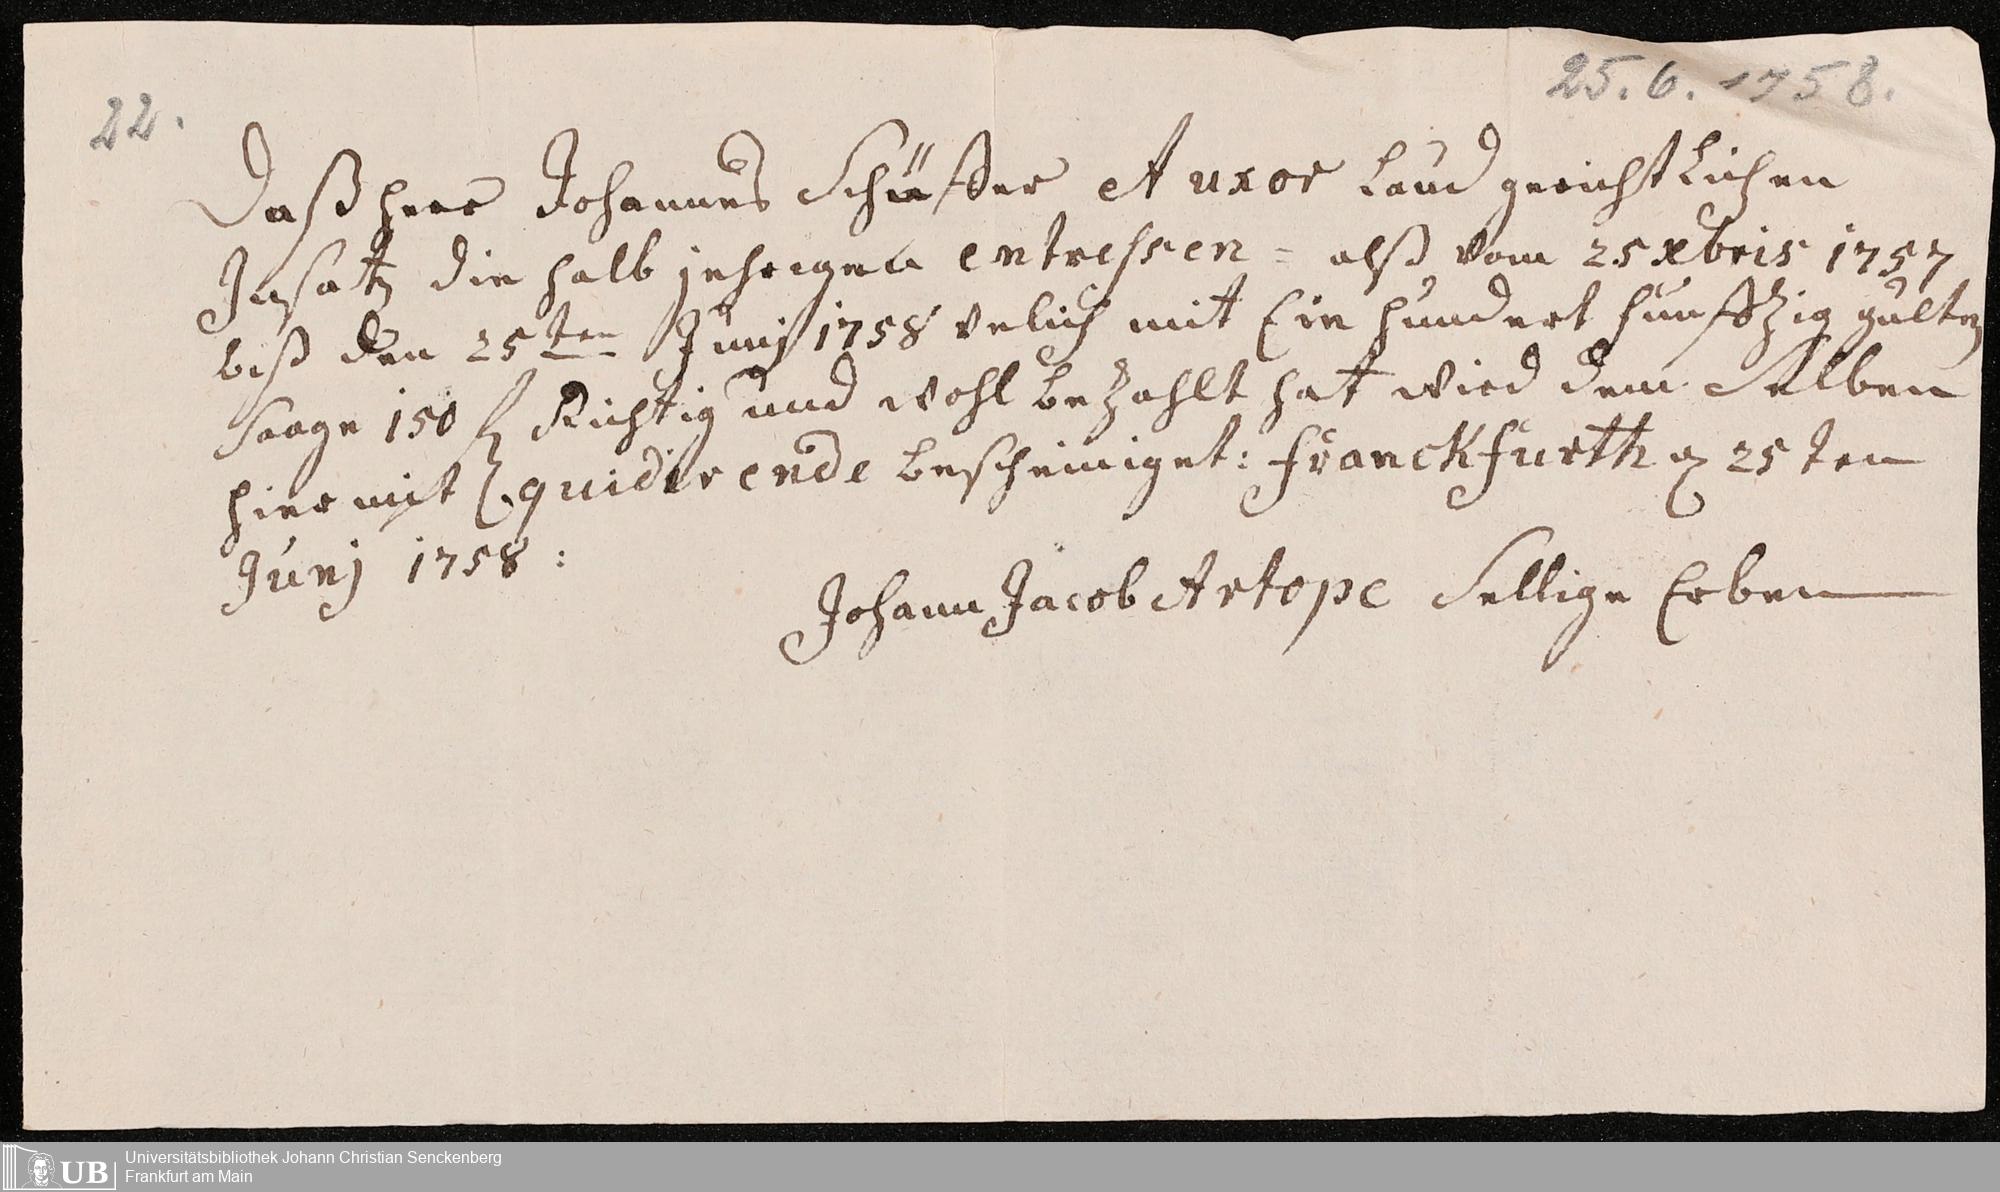 25.6.1758.
22.
Daß herr Johannes Schüßer et uxor laud gerichtlichen
Insatz die halb jehrigen entressen = alß vom 25 xbris 1757
biß den 25ten Junj 1758 mit Ein hundert funffzig gulten
Saage 150 f Richtig und wohl bezahlt hat wird dem Selben
hier mit quidirende bescheiniget: franckfurth 25 ten
Junj 1758:
Johann Jacob Artope Sellige Erben
UB Universitätsbibliothek Johann Christian Senckenberg
Frankfurt am Main